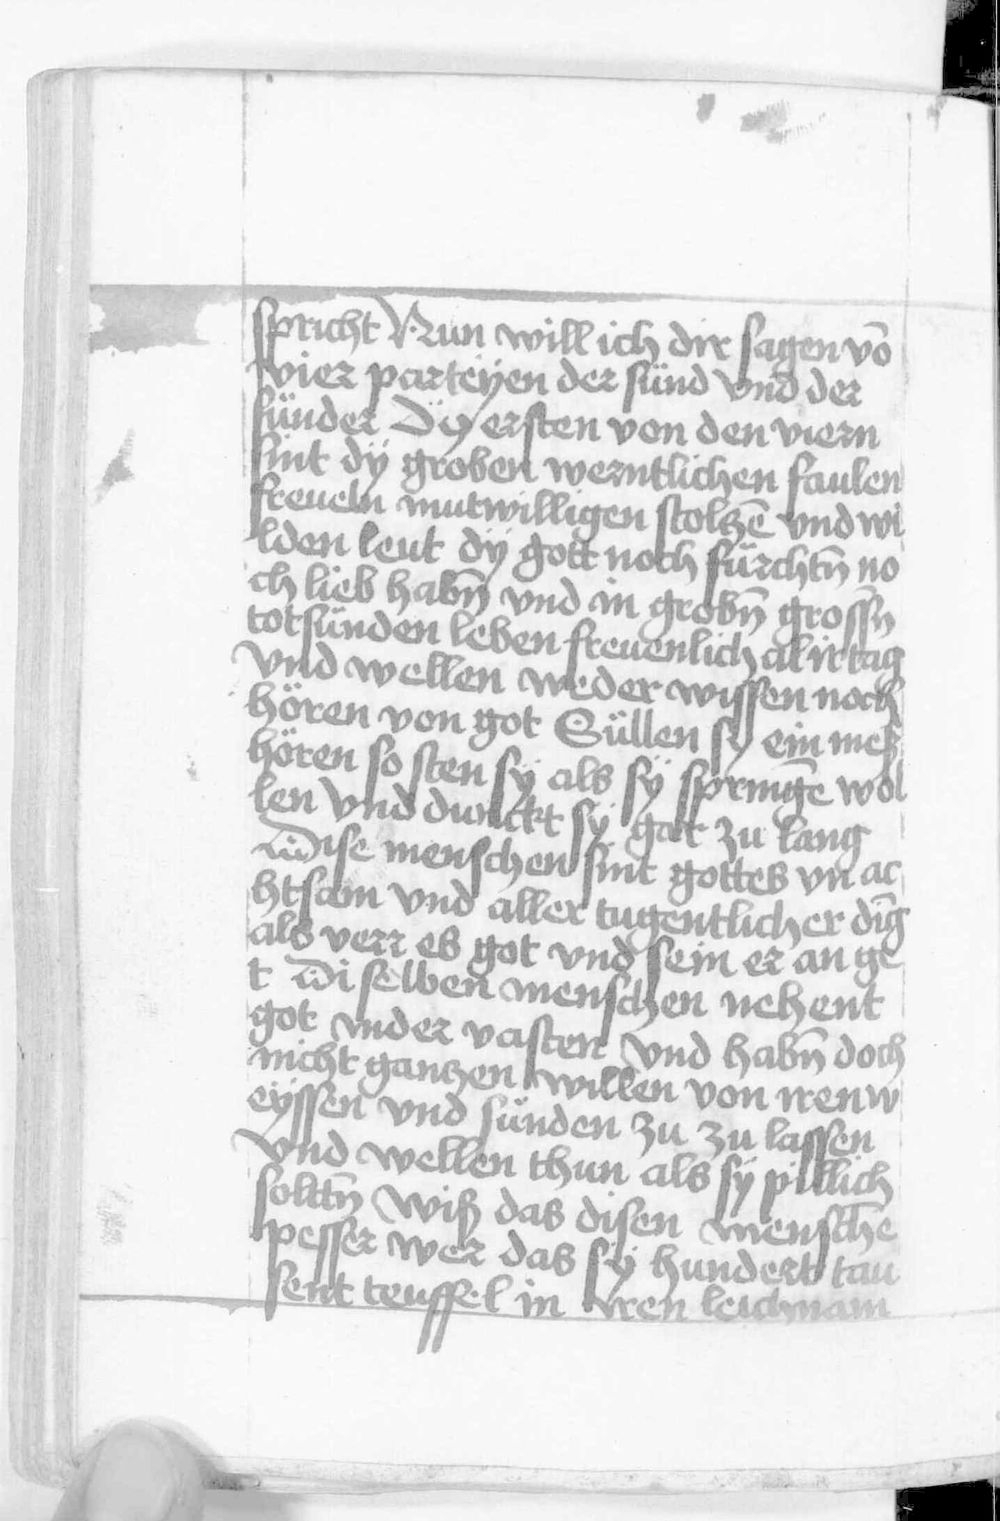 spricht Nun will ich dir sagen vō
vier parteÿen der sünd vnd der
sünder Dÿ ersten von den viern
sint dÿ groben werntlichen faulen
freueln mutwilligen stolczē vnd wi
lden leut dÿ gott noch fürchtn̄ no
ch lieb habn̄ vnd in grobn̄ grossn̄
totsünden leben freuenlich al ir tag
vnd wellen weder wissen noch
hören von got Süllen sÿ ein meß
hören so sten sÿ als sÿ springē wol
len vnd dunckt sÿ gar zu lang
Dise menschen sint gottes vn ac
htsam vnd aller tugentlicher dīg
als verr es got vnd sein er an ge
t Di selben menschen nehent
got in der vasten vnd habn̄ doch
nicht ganczen willen von iren w
eÿssen vnd sünden zu zu lassen
vnd wellen thun als sÿ pillich
soltn̄ Wiß das disen menschē
pesser wer das sÿ hundert tau
sent teuffel in iren leichnam